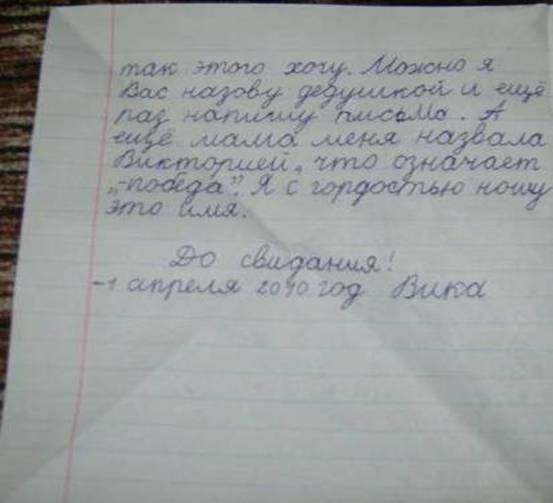 так этого хочу. Можно я
Вас назову дедушкой и ещё
раз напишу письмо. А
ещё мама меня назвала
Викторией, что означает
„-победа”. Я с гордостью ношу
это имя.
До свидания!
-1 апреля 2010 год Вика